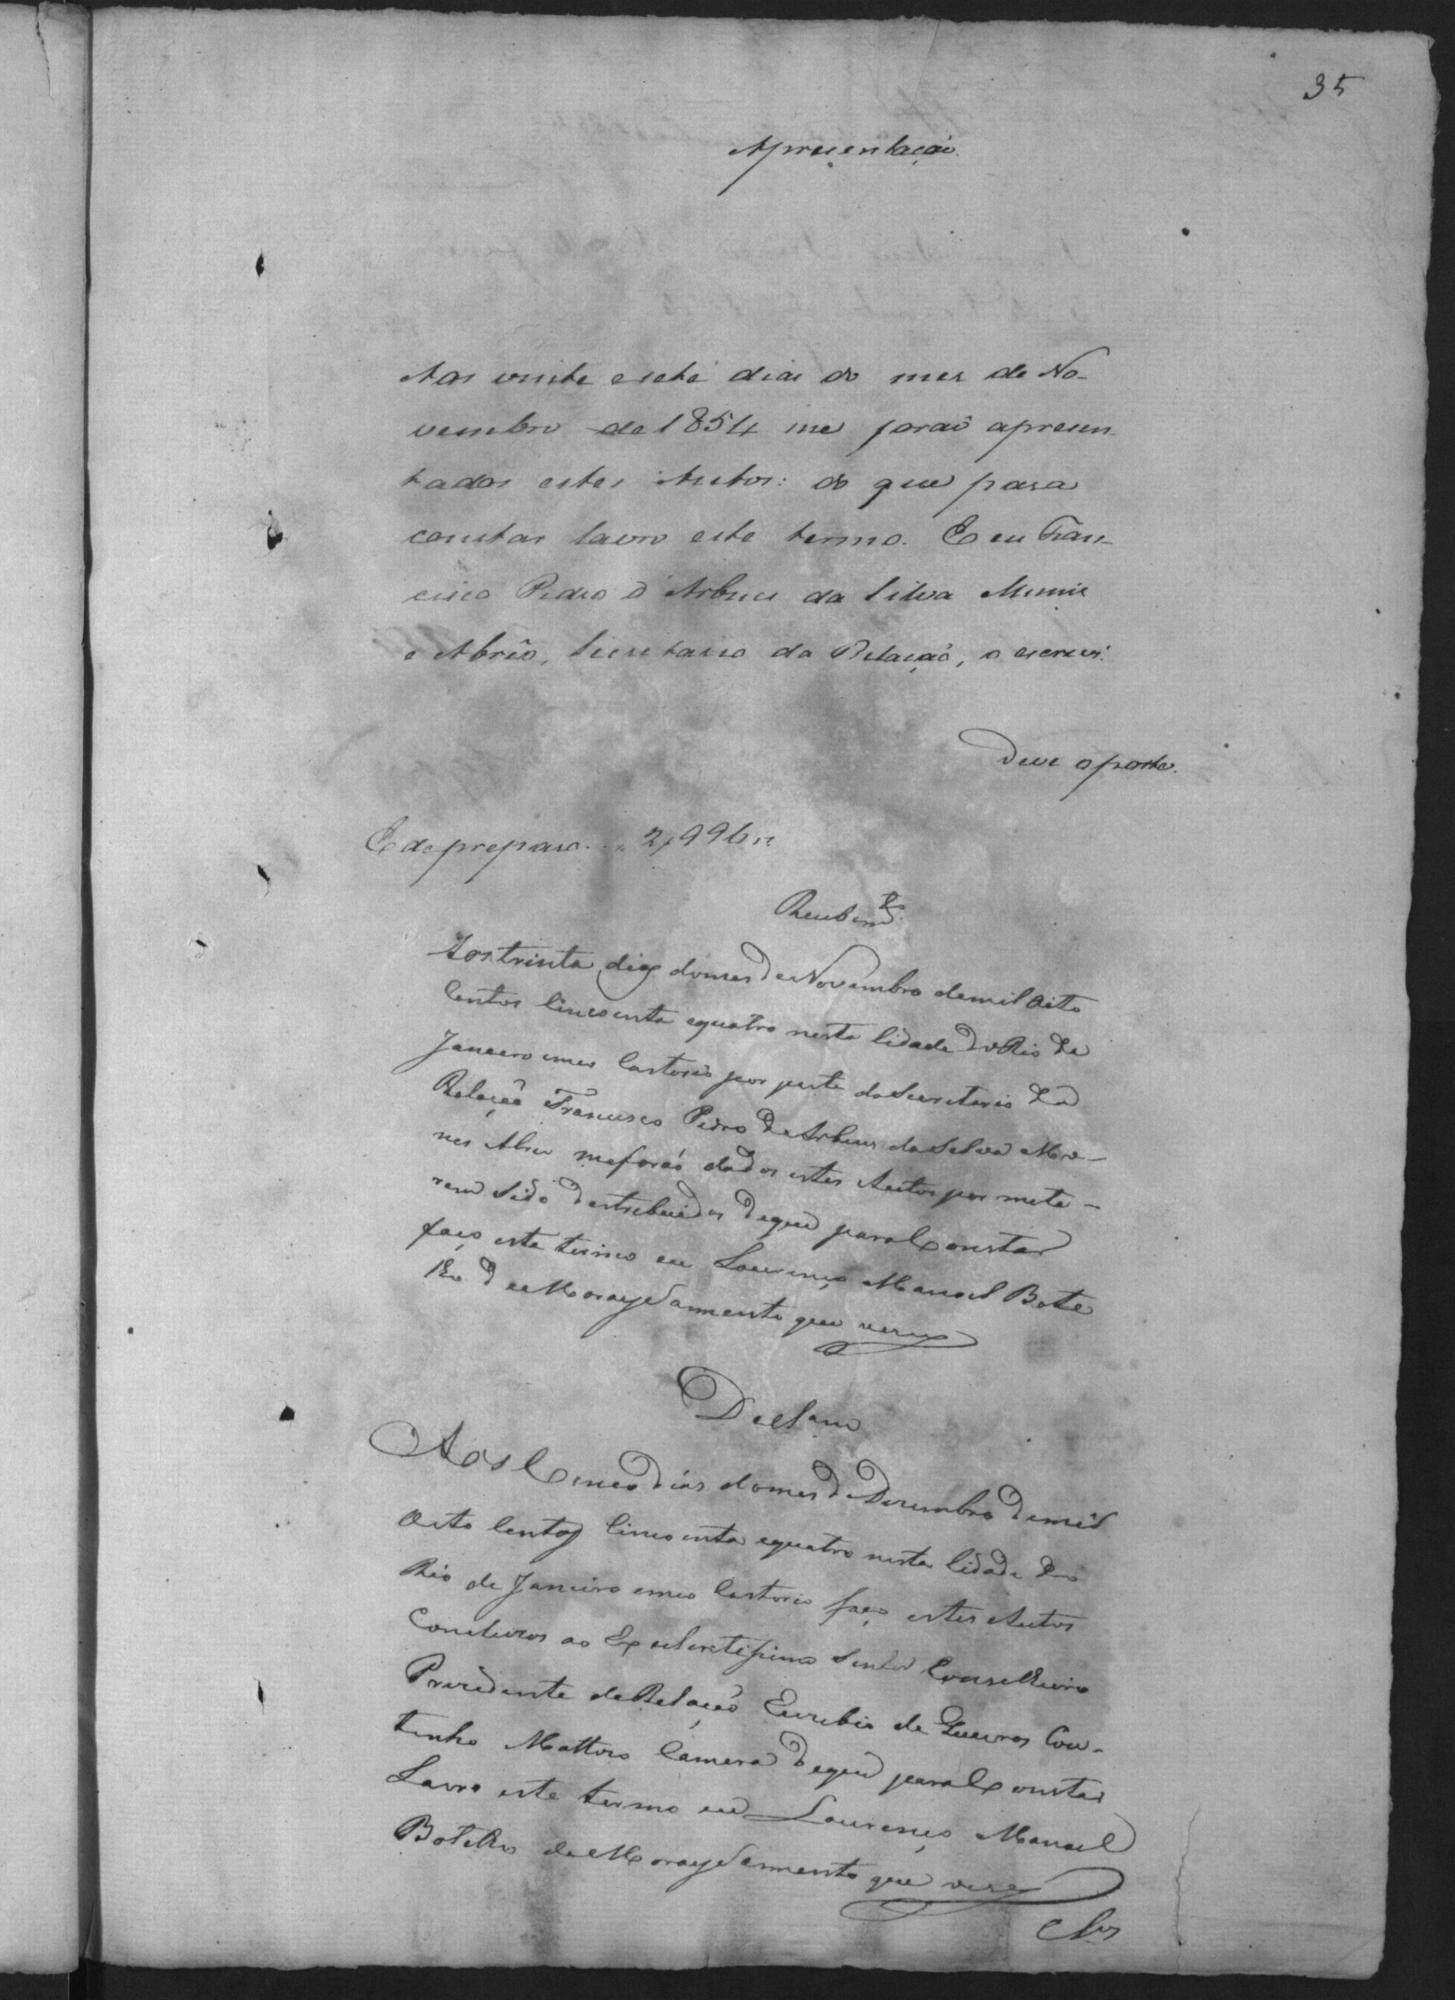 35
Apresentação.
Aos vinte e sete dias do mes de No-
vembro de 1854 me forão apresen-
tados estes Autos: do que para
constar lavro este termo. E eu Fran-
cisco Pedro d'Arbues da Silva Muniz
e Abrêo, Secretario da Relação, o escrevi.
Deve o porte.
E de preparo... 2,996 rs
Recebim.to
Aos trinta dias do mes de Novembro de mil Oito
Centos Cincoenta e quatro nesta Cidade do Rio de
Janeiro em meu Cartorio por parte do Secretario da
Relação Francisco Pedro de Arbues da Silva Mo-
nis Abreu me forão dados estes Autos por me te-
rem sido destribuidos de que para Constar
faço este termo eu Lourenço Manoel Bote
lho de Moraes Sarmento que
Aos Cinco dias do mes de Dezembro de mil
Oito Centos Cincoenta e quatro nesta Cidade do
Rio de Janeiro em meu Cartorio faço estes Autos
Concluzos ao Excelentissimo Senhor Conselheiro
Prezidente da Relação Euzebio de Queiros Cou-
tinho Mattozo Camera de que para Constar
Lavro este termo eu Lourenço Manoel
Botelho de Moraes Sarmento que
Cls